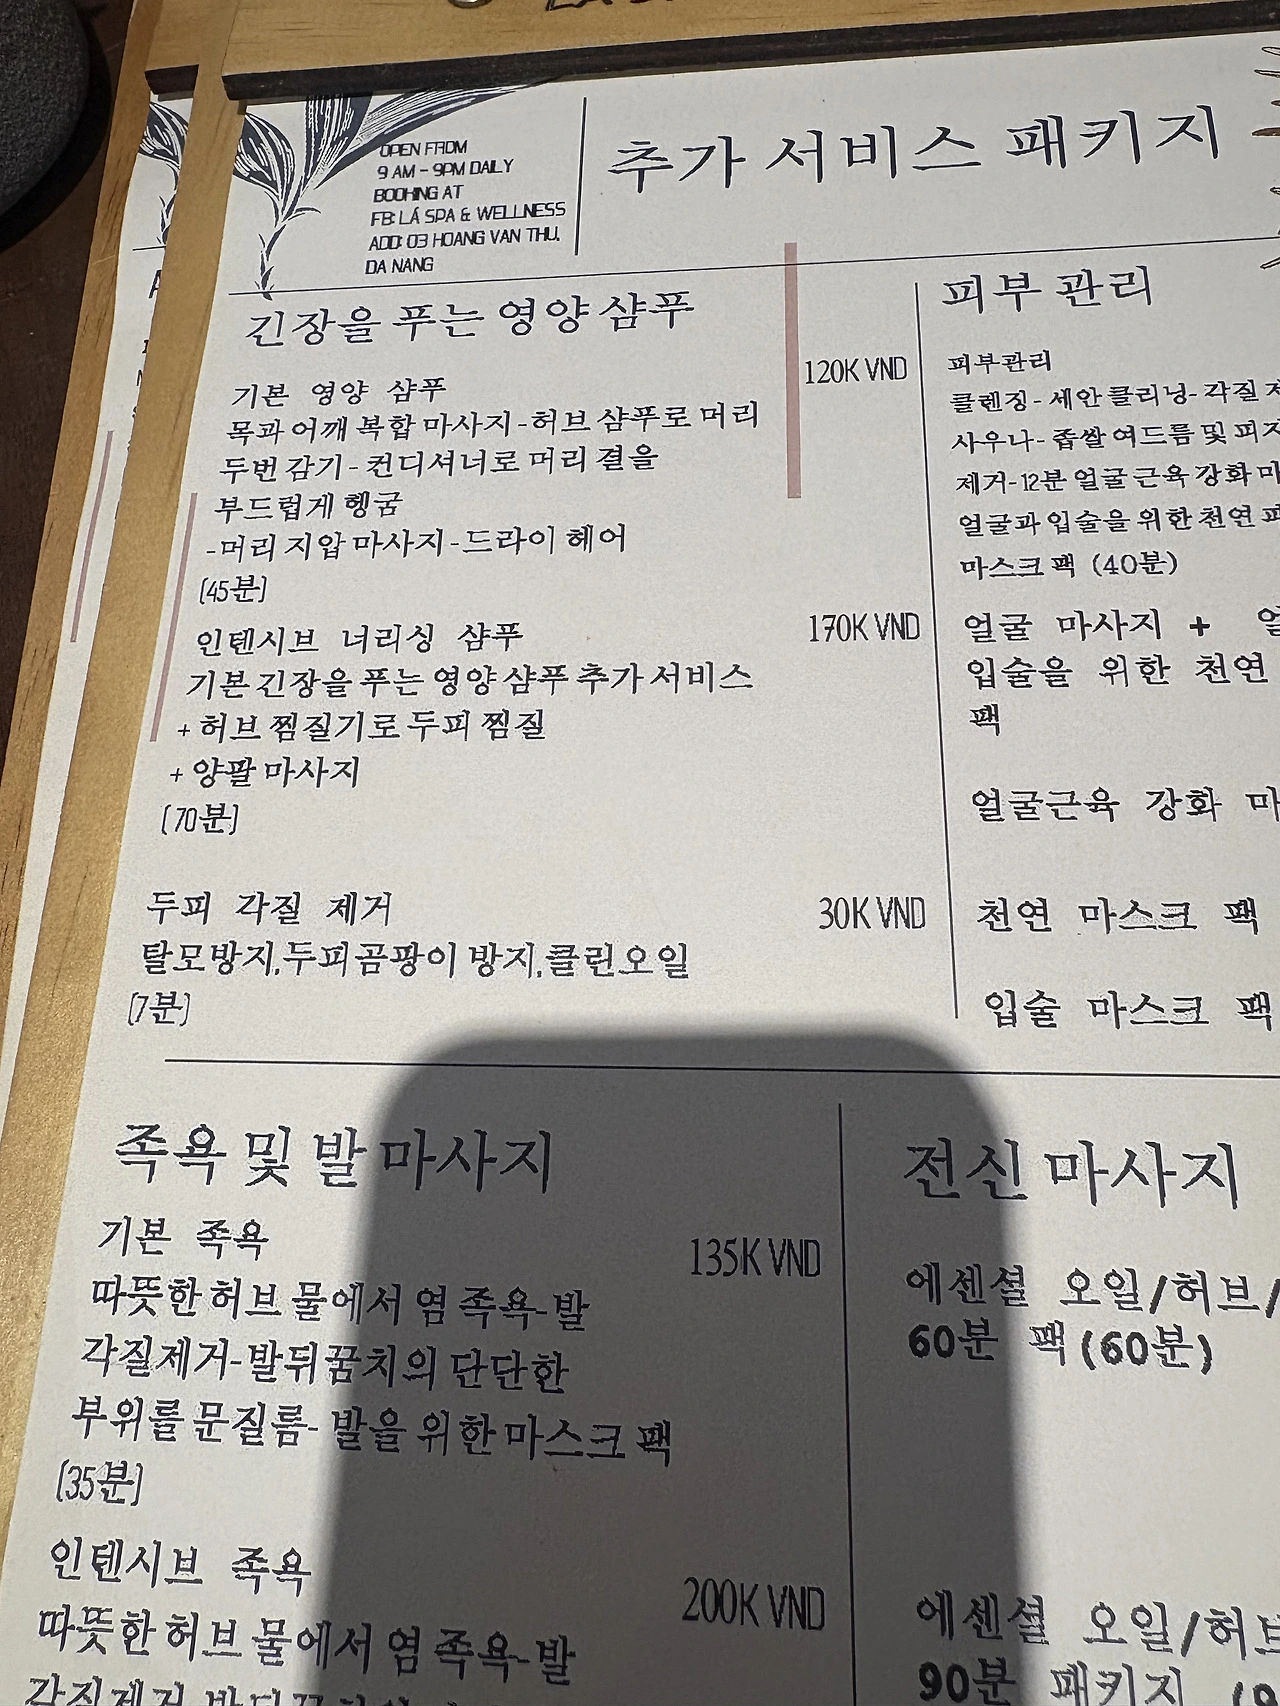 OPEN FROM
9 AM - 9PM DAILY
BOOKING AT
FB: LÁ SPA & WELLNESS
ADD: 03 HOANG VAN THU,
DA NANG
추가 서비스 패키지
긴장을 푸는 영양 샴푸
기본 영양 샴푸
120K VND
목과 어깨 복합 마사지-허브 샴푸로 머리
두번 감기- 컨디셔너로 머리 결을
부드럽게 헹굼
-머리 지압 마사지-드라이 헤어
(45분)
인텐시브 너리싱 샴푸
170K VND
기본 긴장을 푸는 영양 샴푸 추가 서비스
+ 허브 찜질기로 두피 찜질
+ 양팔 마사지
(70분)
두피 각질 제거
30K VND
탈모방지,두피곰팡이 방지,클린오일
(7분)
피부 관리
피부관리
클렌징- 세안 클리닝- 각질
사우나- 좁쌀 여드름 및
제거-12분 얼굴 근육 강화
얼굴과 입술을 위한 천연
마스크 팩 (40분)
얼굴 마사지 +
입술을 위한 천연
팩
얼굴근육 강화
천연 마스크 팩
입술 마스크 팩
족욕 및 발 마사지
기본 족욕
135K VND
따뜻한 허브 물에서 염 족욕-발
각질제거-발뒤꿈치의 단단한
부위를 문질름- 발을 위한 마스크 팩
(35분)
인텐시브 족욕
200K VND
따뜻한 허브 물에서 염 족욕-발
전신 마사지
에센셜 오일/허브/
60분 팩(60분)
에센셜 오일/허브
90분 패키지